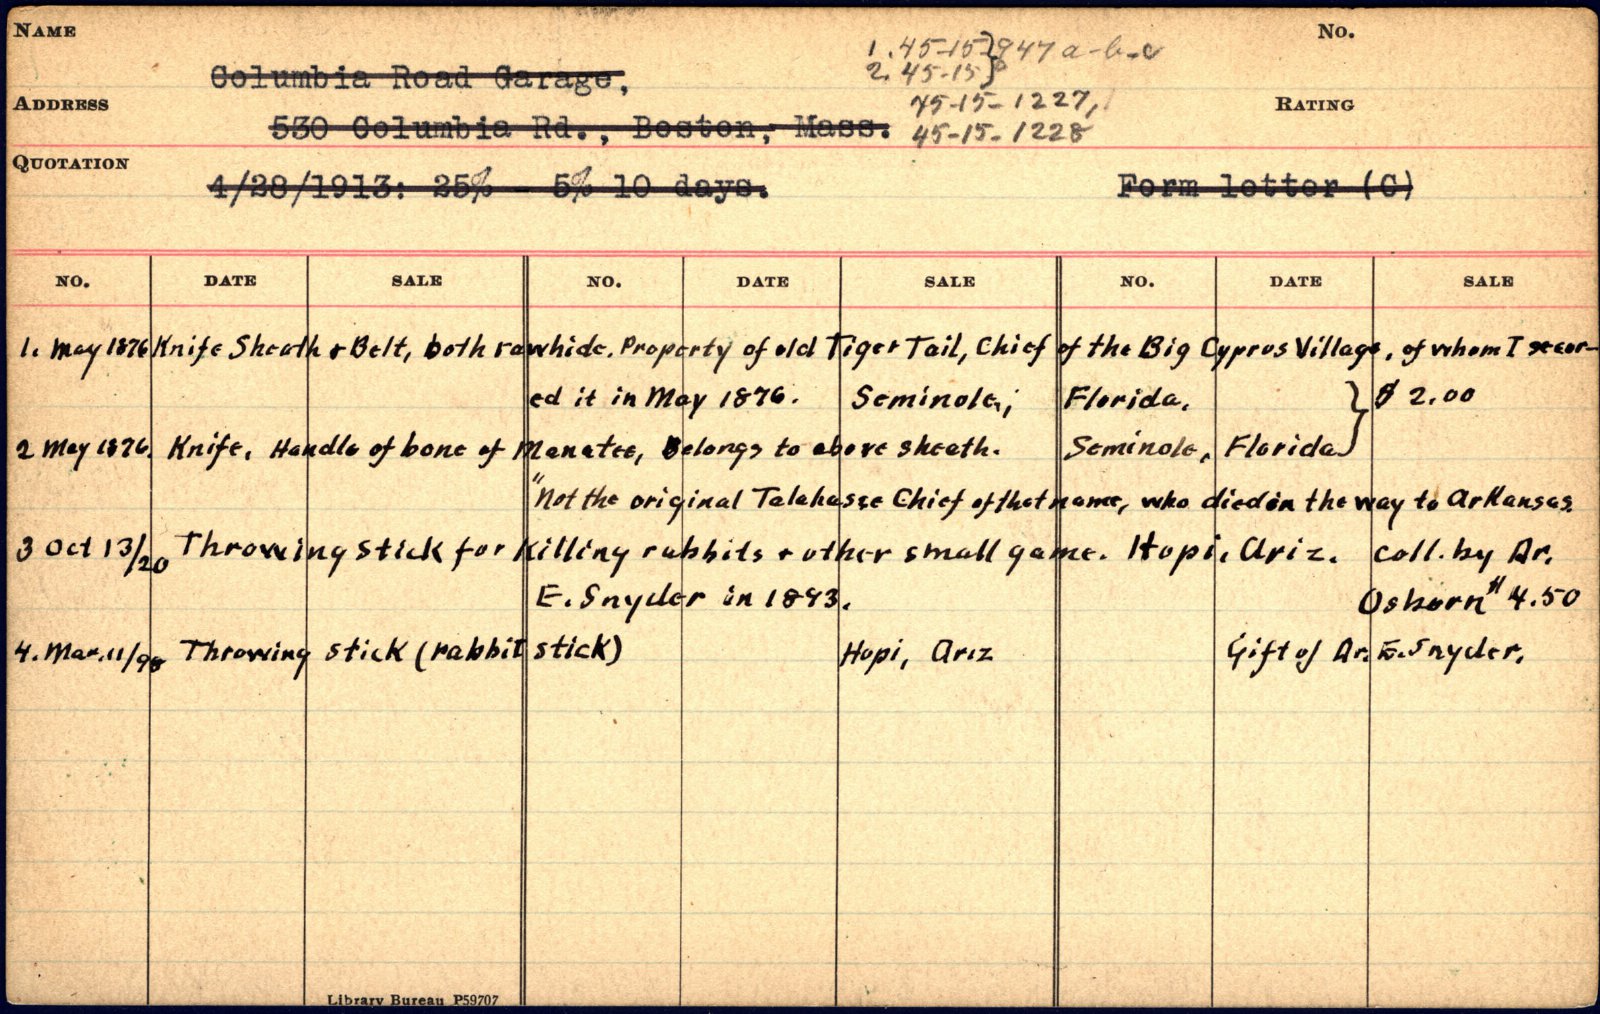 NAME
No.
1. 45-15 } 947 a-b-c
2. 45-15
Columbia Road Garage,
ADDRESS
45-15-1227,
RATING
530 Columbia Rd., Boston, Mass.
45-15-1228
QUOTATION
4/28/1913: 25% - 5% 10 days.
Form letter (C)
NO. DATE SALE NO. DATE SALE NO. DATE SALE
1. May 1876 Knife Sheath & Belt, both rawhide. Property of old Tiger Tail, Chief of the Big Cyprus Village, of whom I secur-
ed it in May 1876. Seminole, ; Florida. } $ 2.00
2 May 1876. Knife. Handle of bone of Manatee, Belongs to above sheath. Seminole, Florida
"Not the original Talahasse Chief of that name, who died on the way to Arkansas.
3 Oct 13/20 Throwing stick for killing rabbits & other small game. Hopi, Ariz. coll. by Dr.
E. Snyder in 1893. Osborn $ 4.50
4. Mar. 11/98 Throwing stick (rabbit stick) Hopi, Ariz Gift of Dr. E. Snyder.
Library Bureau P59707